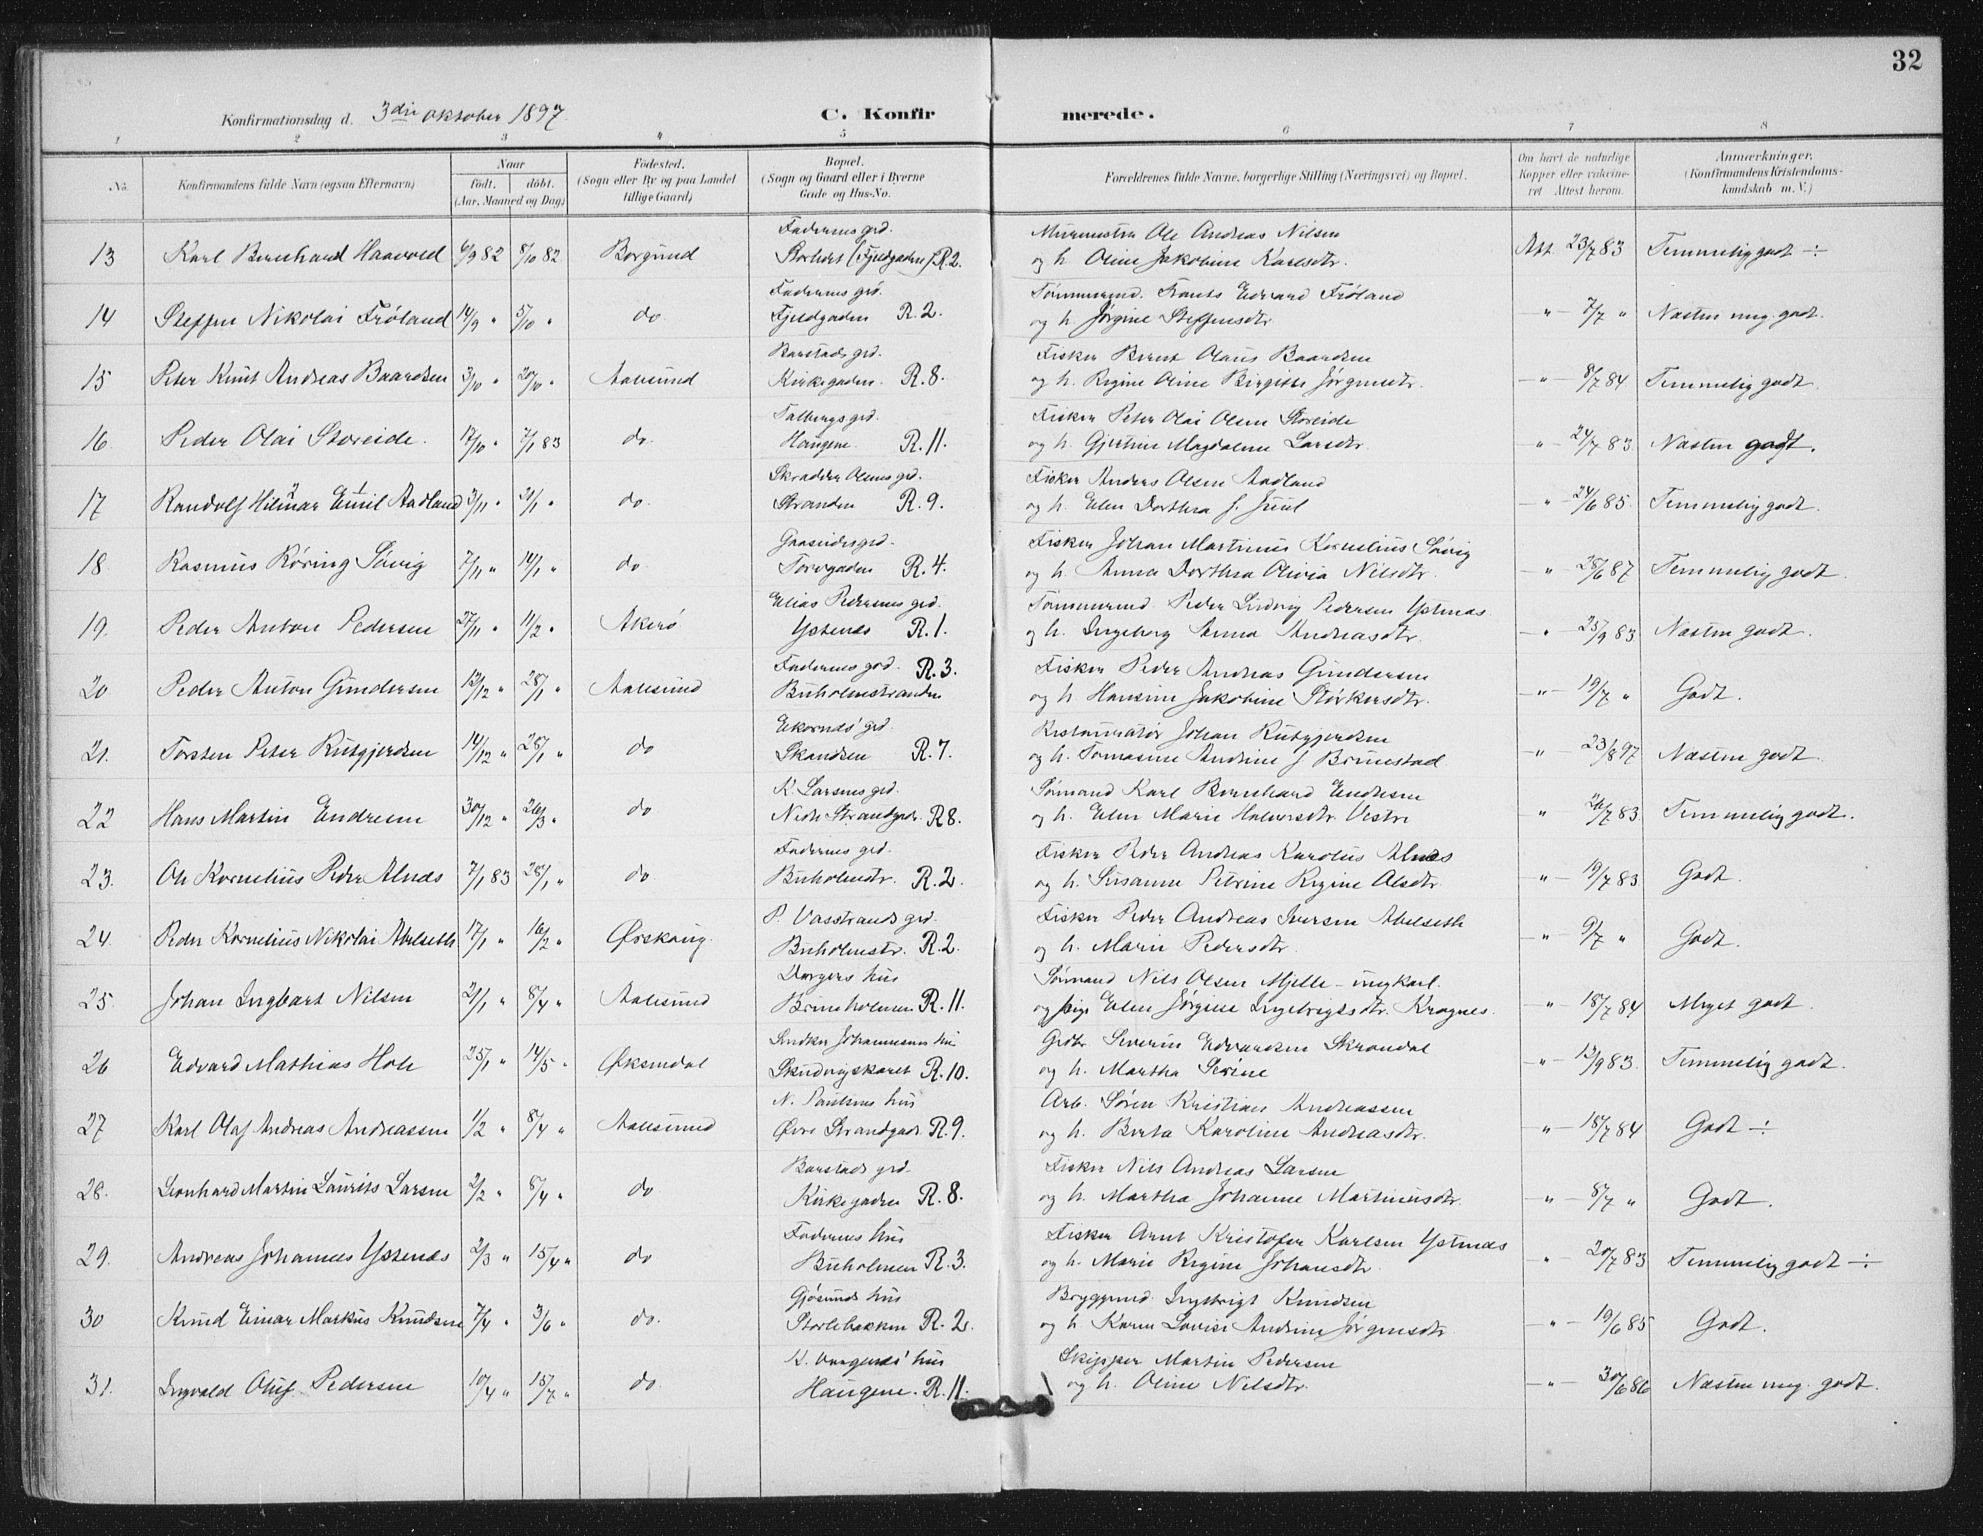 32
Konfirmationsdag d. 3die oktober 1897. C. Konfirmerede.
1 2 3 4 5 6 7 8
No. Konfirmandens fulde Navn (ogsaa Efternavn) Naar født. døbt. (Aar, Maaned og Dag) Fødested. (Sogn eller By og paa Landet tillige Gaard) Bopæl. (Sogn og Gaard eller i Byerne Gade og Hus-No. Forældrenes fulde Navne, borgerlige Stilling (Næringsvei) og Bopæl. Om havt de naturlige Kopper eller vaccineret Attest herom. Anmærkninger. (Konfirmandens Kristendomskundskab m. V.)
Faderens grd. Murmester Ole Andreas Nilsen
13 Karl Bernhard Haavold 6/9 82 8/10 82 Borgund Storhet (Fjeldgaden) R.2. og h. Oline Jakobine Karlsdtr. Att. 23/7 83 Temmelig godt ÷
Faderens grd. Tømmermd. Frants Edvard Frøland
14 Steffen Nikolai Frøland 14/9 " 5/10 " do Fjeldgaden R.2. og h. Jørgine Steffensdtr. " 7/7 " Næsten meg. godt.
Barstads grd. Fisker Bernt Olaus Baardsen
15 Peter Knut Andreas Baardsen 3/10 " 20/10 " Aalesund Kirkegaden. R.8. og h. Regine Oline Birgitte Jørgensdtr. " 8/7 84 Temmelig godt.
Talbergs grd. Fisker Peter Olai Olsen Storeide
16. Peder Olai Storeide. 17/10 " 7/1 83 do. Haugene R.11. og h. Gjertine Magdalene Larsdtr. " 24/7 83 Næsten godt.
Skrædder Olsens grd. Fisker Anders Olsen Aadland
17 Randolf Hilmar Emil Aadland 3/11 " 21/1 " do. Stranden R.9. og h. Elen Dorthea J. Juul " 24/6 85. Temmelig godt.
Gaaseides grd. Fisker Johan Martinus Kornelius Søvig
18 Rasmus Røring Søvig 7/11 " 14/1 " do. Torvgaden R.4. og h. Anna Dorthea Olivia Nilsdtr. " 28/6 87 Temmelig godt.
Elias Pedersens grd. Tømmermd. Peder Ludvig Pedersen Ystenæs
19. Peder Anton Pedersen 27/11 " 11/2 " Akerø Ystenæs R.1. og h. Ingeborg Anna Andreasdtr. " 25/9 83 Næsten godt.
Faderens grd. R.3. Fisker Peder Andreas Gundersen
20 Peder Anton Gundersen 12/12 " 28/1 " Aalesund Buholmstranden og h. Hansine Jakobine Størkersdtr. " 19/7 " Godt.
Ekornæs' grd. Restauratør Johan Rutgjerdsen
21. Torsten Peter Rutgjerdsen 14/12 " 28/1 " do Skandsen R.7. og h. Tomasine Andrine J Brunestad " 23/8 97 Næsten godt.
K. Larsens grd. Sømand Karl Bernhard Endresen
22 Hans Martin Endresen 30/12 " 26/3 " do Nedre Strandgade R8. og h. Elen Marie Halvorsdtr. Vestre " 26/7 83. Temmelig godt.
Faderens grd. Fisker Peder Andreas Karolus Alnæs
23. Ole Kornelius Peder Alnæs 7/1 83 28/1 " do Buholmstr. R.2. og h. Susanne Petrine Regine Olsdtr. " 19/7 83. Godt.
P. Vasstrands grd. Fisker Peder Andreas Iversen Abelseth
24. Peder Kornelius Nikolai Abelseth 17/1 " 16/2 " Ørskoug. Buholmstr. R.2. og h. Marie Pedersdtr. " 9/7 " Godt.
Dorgers hus Sømand Nils Olsen Mjelle - ungkarl.
25. Johan Ingbart Nilsen 21/1 " 8/4 " Aalesund Bruneholmen R.11. og pige Elen Jørgine Ingebrigtsdtr. Kragnes. " 18/7 84 Meget godt.
Snedker Johannesens hus Grdbr. Severin Edvardsen Skrondal
26 Edvard Mathias Hole 25/1 " 14/5 " Øksendal Skudvigskaret R.10. og h. Martha Serine " 12/9 83. Temmelig godt.
N. Paulsens hus Arb. Søren Kristian Andreassen
27 Karl Olaf Andreas Andreassen 1/2 " 8/4 " Aalesund Øvre Strandgade R.9. og h. Berta Karoline Andreasdtr. " 18/7 84 Godt ÷
Barstads grd. Fisker Nils Andreas Larsen
28. Leonhard Martin Laurits Larsen 2/2 " 8/4 " do Kirkegaden R.8. og h. Martha Johanne Martinusdtr. " 8/7 " Godt.
Faderens hus Fisker Arnt Kristofer Karlsen Ystenæs
29. Andreas Johannes Ystenæs 2/3 " 15/4 " do Buholmen R.3. og h. Marie Regine Johansdtr. " 20/7 83 Temmelig godt ÷
Gjøsunds hus Bryggemd. Ingebrigt Knudsen
30 Knud Einar Markus Knudsen 7/4 " 3/6 " do. Storlebakken R.2. og h. Karen Lovise Andrine Jørgensdtr. " 19/6 85 Godt.
K. Vaagenæs' hus Skipper Martin Pedersen
31. Ingvald Oluf Pedersen 10/4 " 15/7 " do. Haugene. R.11. og h. Oline Nilsdtr. " 30/6 86 Næsten meg. godt.